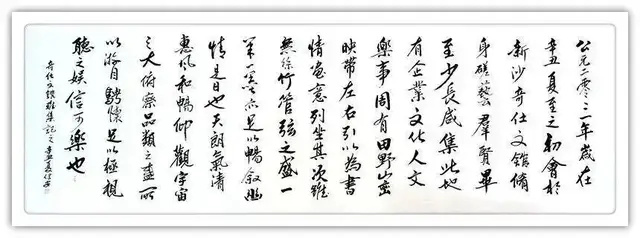 公元二零二一年歲在
辛丑夏至之初會於
新沙奇仕文館脩
身磋藝群賢畢
至少長咸集此地
有企業文化人文
樂事周有田野山巒
映帶左右引以為書
情畫意列坐其次雖
無絲竹管弦之盛一
筆一墨亦足以暢敘幽
情是日也天朗氣清
惠風和暢仰觀宇宙
之大俯察品類之盛所
以遊目騁懷足以極視
聽之娛信可樂也
奇仕文館雅集記之辛丑夏